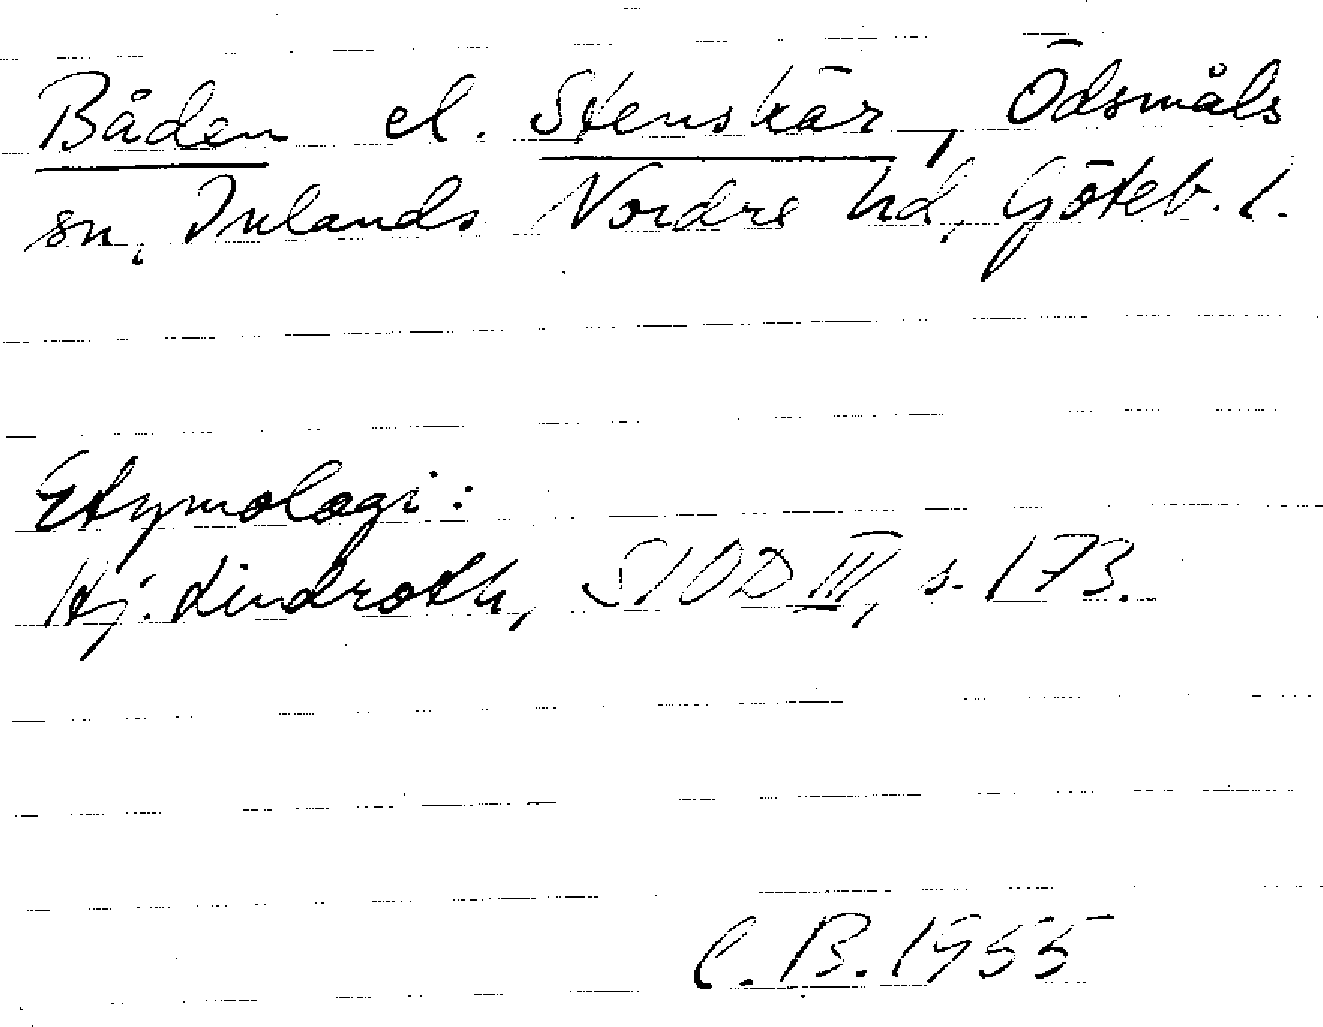 Båden el. Stenskär, Ödsmåls
sn, Inlands Nordre hd, Göteb. l.
Etymologi:
Hj. Lindroth, SIOD III, s. 173.
C. B. 1955